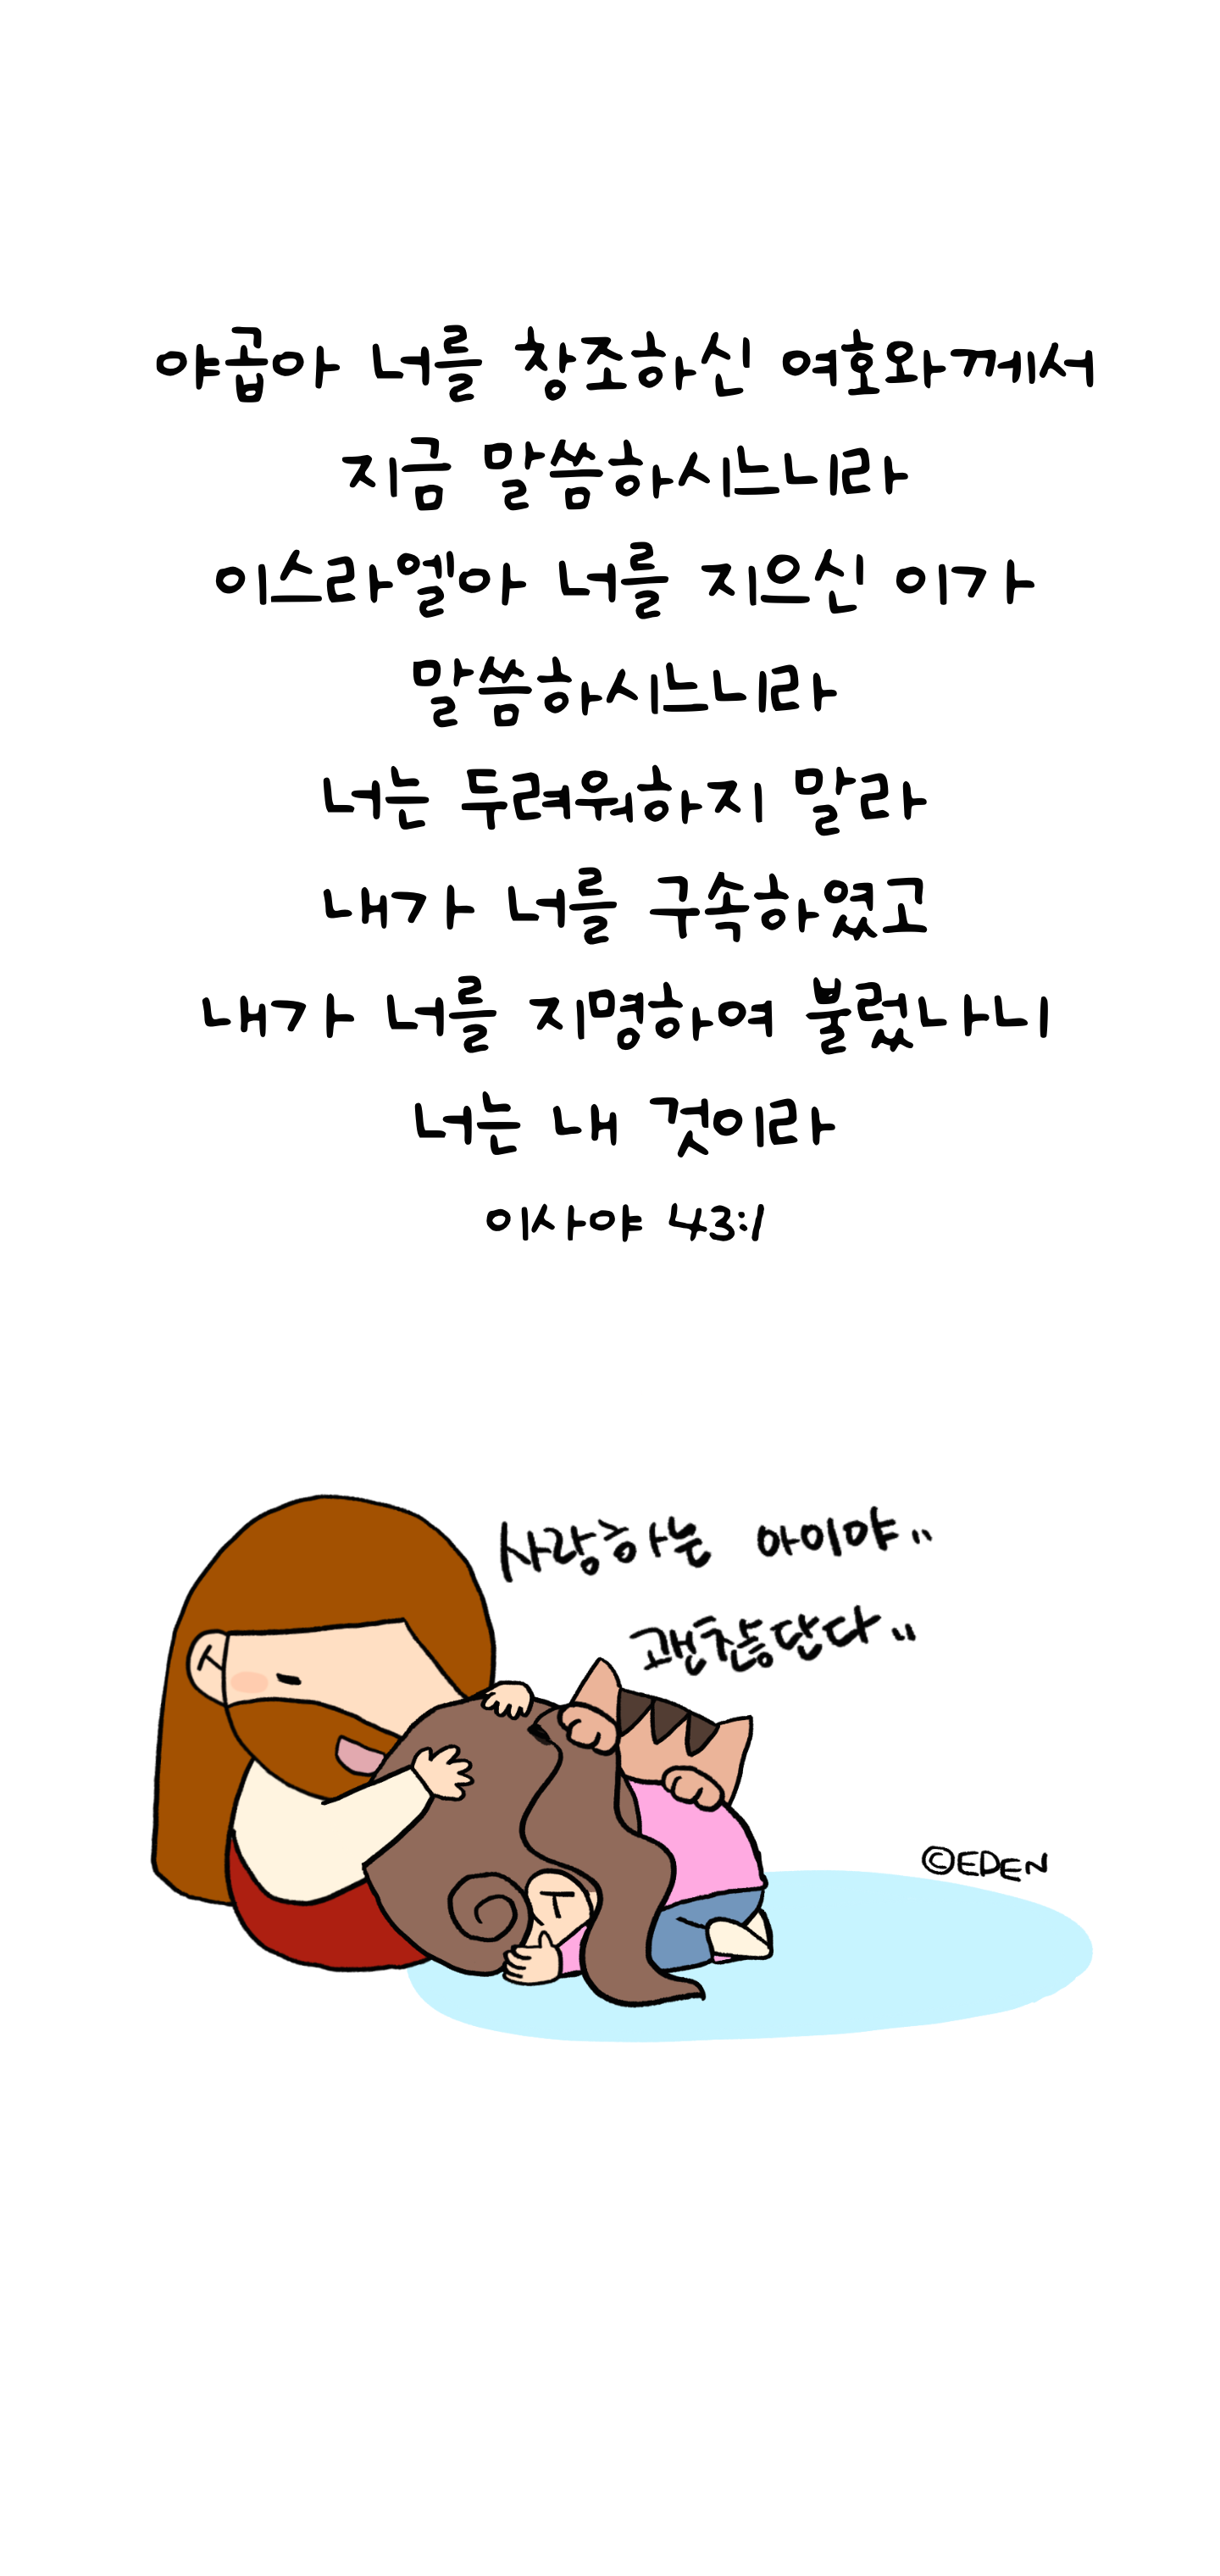 야곱아 너를 창조하신 여호와께서
지금 말씀하시느니라
이스라엘아 너를 지으신 이가
말씀하시느니라
너는 두려워하지 말라
내가 너를 구속하였고
내가 너를 지명하여 불렀나니
너는 내 것이라
이사야 43:1
사랑하는 아이야..
괜찮단다..
©EDEN